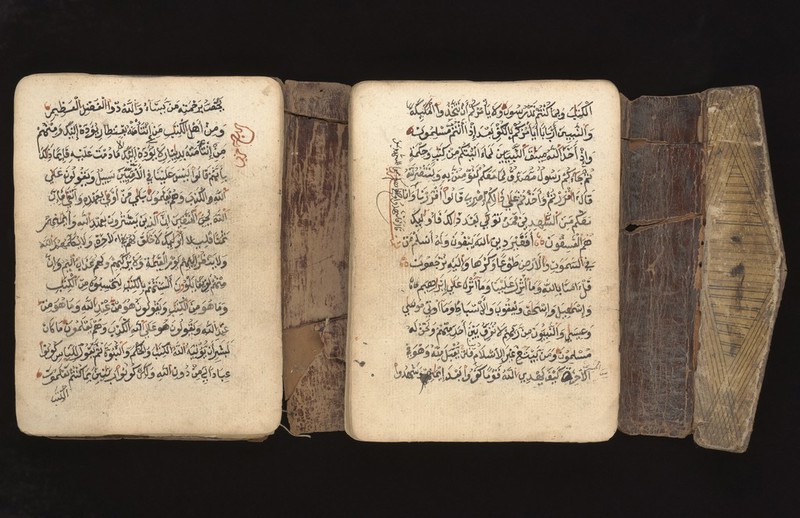 يختص برحمته من يشاء والله ذوا الفضل العظيم
ومن اهل الكتب من ان تامنه بقنطار يوده اليك ومنهم
من ان تامنه بدينار لا يوده اليك الا ما دمت عليه قايما ذلك
بانهم قالوا ليس علينا في الاميين سبيل ويقولون على
الله الكذب وهم يعلمون بلى من اوفى بعهده واتقى فان
الله يحب المتقين ان الذين يشترون بعهد الله وايمنهم
ثمنا قليلا اوليك لا خلق لهم في الاخرة ولا يكلمهم الله
ولا ينظر اليهم يوم القيمة ولا يزكيهم ولهم عذاب اليم وان
منهم لفريقا يلون السنتهم بالكتب لتحسبوه من الكتب
وما هو من الكتب ويقولون هو من عند الله وما هو من
عند الله ويقولون على الله الكذب وهم يعلمون ما كان
لبشر ان يوتيه الله الكتب والحكم والنبوة ثم يقول للناس كونوا
عبادا لي من دون الله ولكن كونوا ربنين بما كنتم تعلمون
الكتب
الكتب وبما كنتم تدرسون ولا يامركم ان تتخذوا الملئكة
والنبيين اربابا ايامركم بالكفر بعد اذ انتم مسلمون
واذ اخذ الله ميثق النبيين لما اتيتكم من كتب وحكمة
ثم جاكم رسول مصدق لما معكم لتومنن به ولتنصرنه
قال اقررتم واخذتم على ذلكم اصري قالوا اقررنا
معكم من الشهدين فمن تولى بعد ذلك فاوليك
هم الفسقون افغير دين الله يبغون وله اسلم من
في السموت والارض طوعا وكرها واليه يرجعون
قل امنا بالله وما انزل علينا وما انزل على ابرهيم
واسمعيل واسحق ويعقوب والاسباط وما اوتي موسى
وعيسى والنبيون من ربهم لا نفرق بين احد منهم ونحن له
مسلمون ومن يبتغ غير الاسلم فلن يقبل منه وهو في
الاخرة كيف يهدي الله قوما كفروا بعد ايمنهم وشهدوا